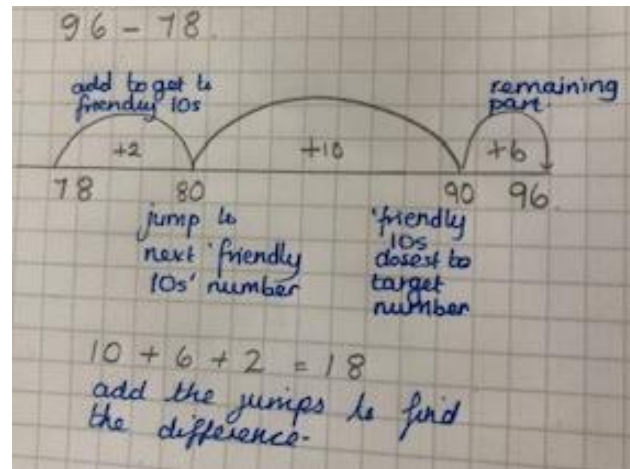 96 - 78.
add to get to
friendly 10s
remaining
part.
+2
+10
+6
78
80
90
96.
jump to
next 'friendly
10s' number
'friendly
10s
closest to
target
number
10 + 6 + 2 = 18
add the jumps to find
the difference.